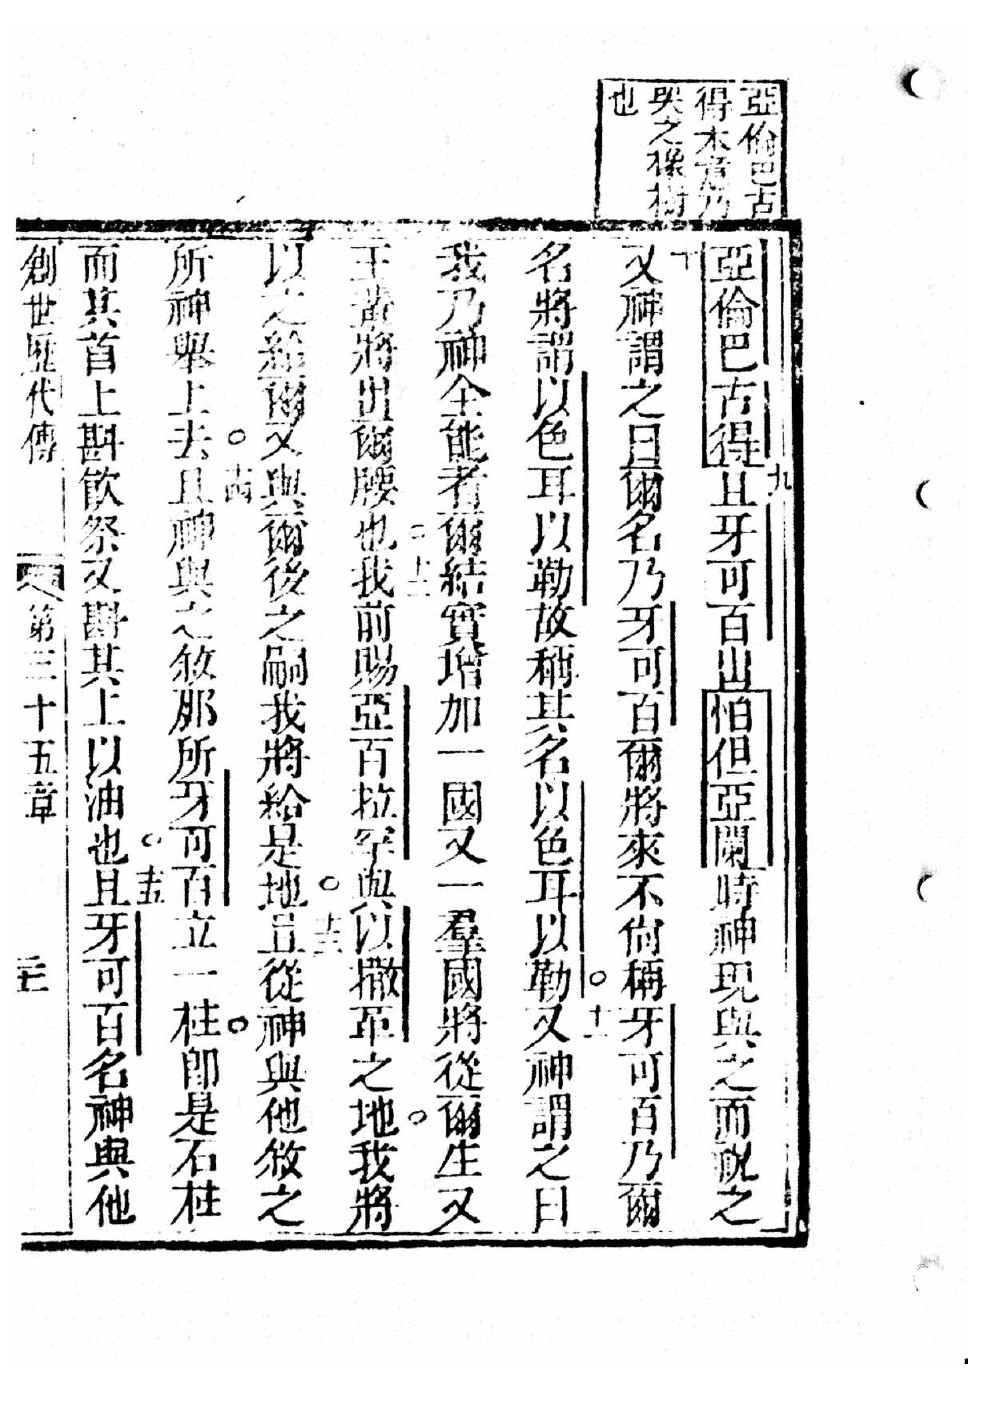 亞倫巴古
得本意乃
哭之橡樹
也
亞倫巴古得九且牙可百出怕但亞闌時神現與之而祝之
十又神謂之曰爾名乃牙可百爾將來不尙稱牙可百乃爾
名將謂以色耳以勒故稱其名以色耳以勒○十一又神謂之曰
我乃神全能者爾結實增加一國又一羣國將從爾生又
王輩將出爾腰也○十二我前賜亞百拉罕與以撒革之地○我將
以之給爾又與爾後之嗣我將給是地○十三且從神與他敘之
所神舉上去○十四且神與之敘那所牙可百立一柱○卽是石柱
而其首上斟飮祭又斟其上以油也○十五且牙可百名神與他
創世歷代傳 第三十五章 二十一